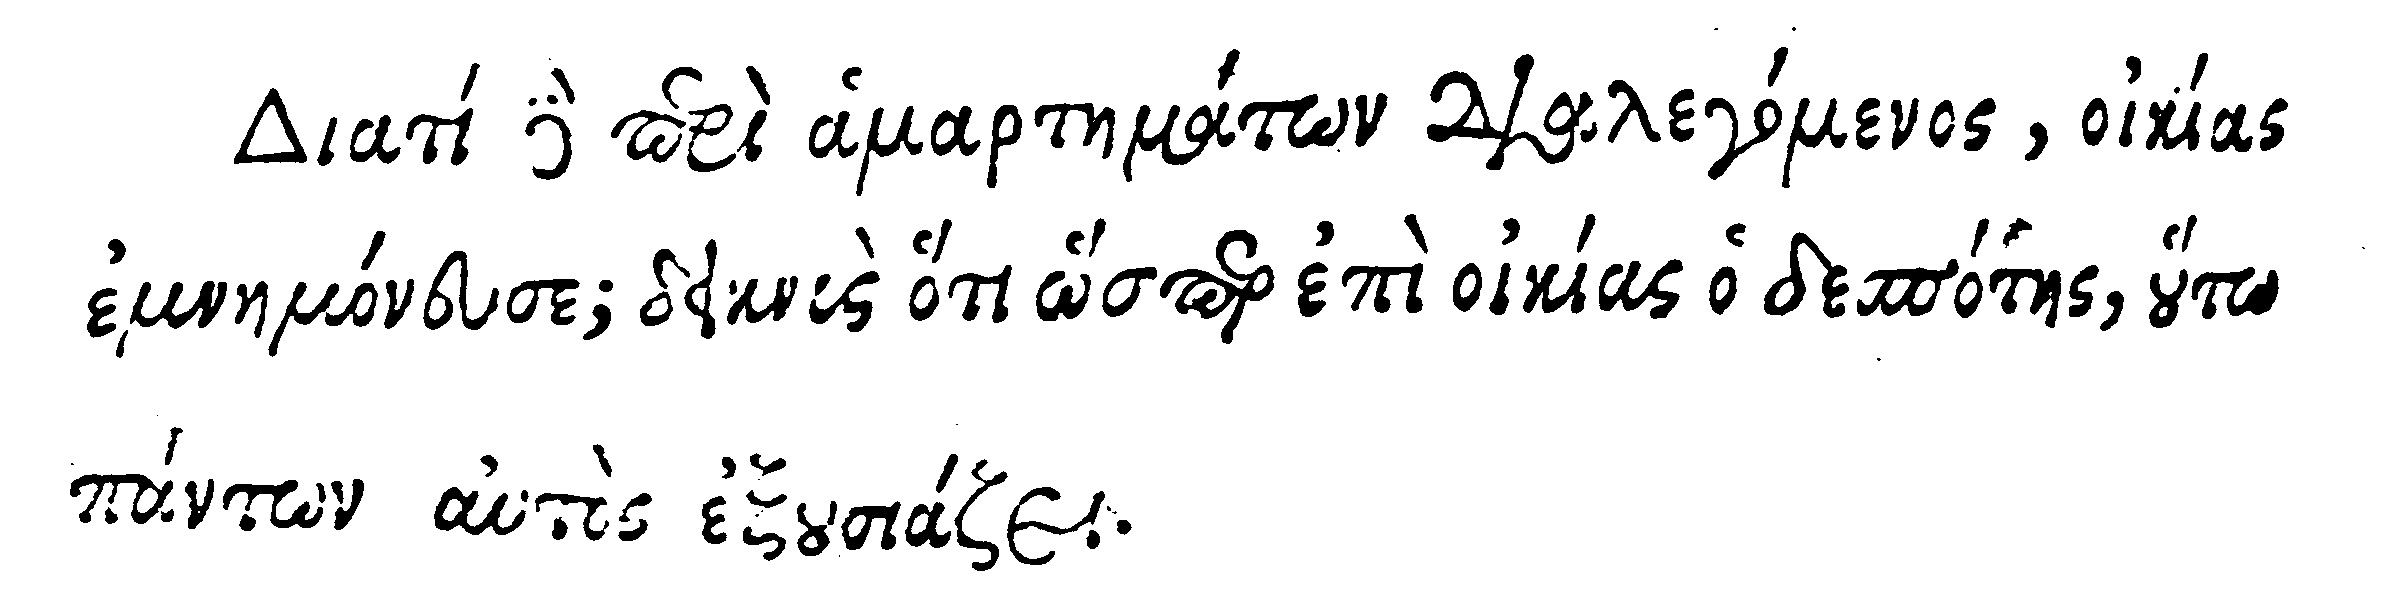 Διατί γὰρ περὶ ἁμαρτημάτων διαλεγόμενος, οἰκίας
ἐμνημόνευσε; δεικνὺς ὅτι ὥσπερ ἐπὶ οἰκίας ὁ δεσπότης, ȣ̔́τω
πάντων αὐτὸς ἐξȣσιάζει.